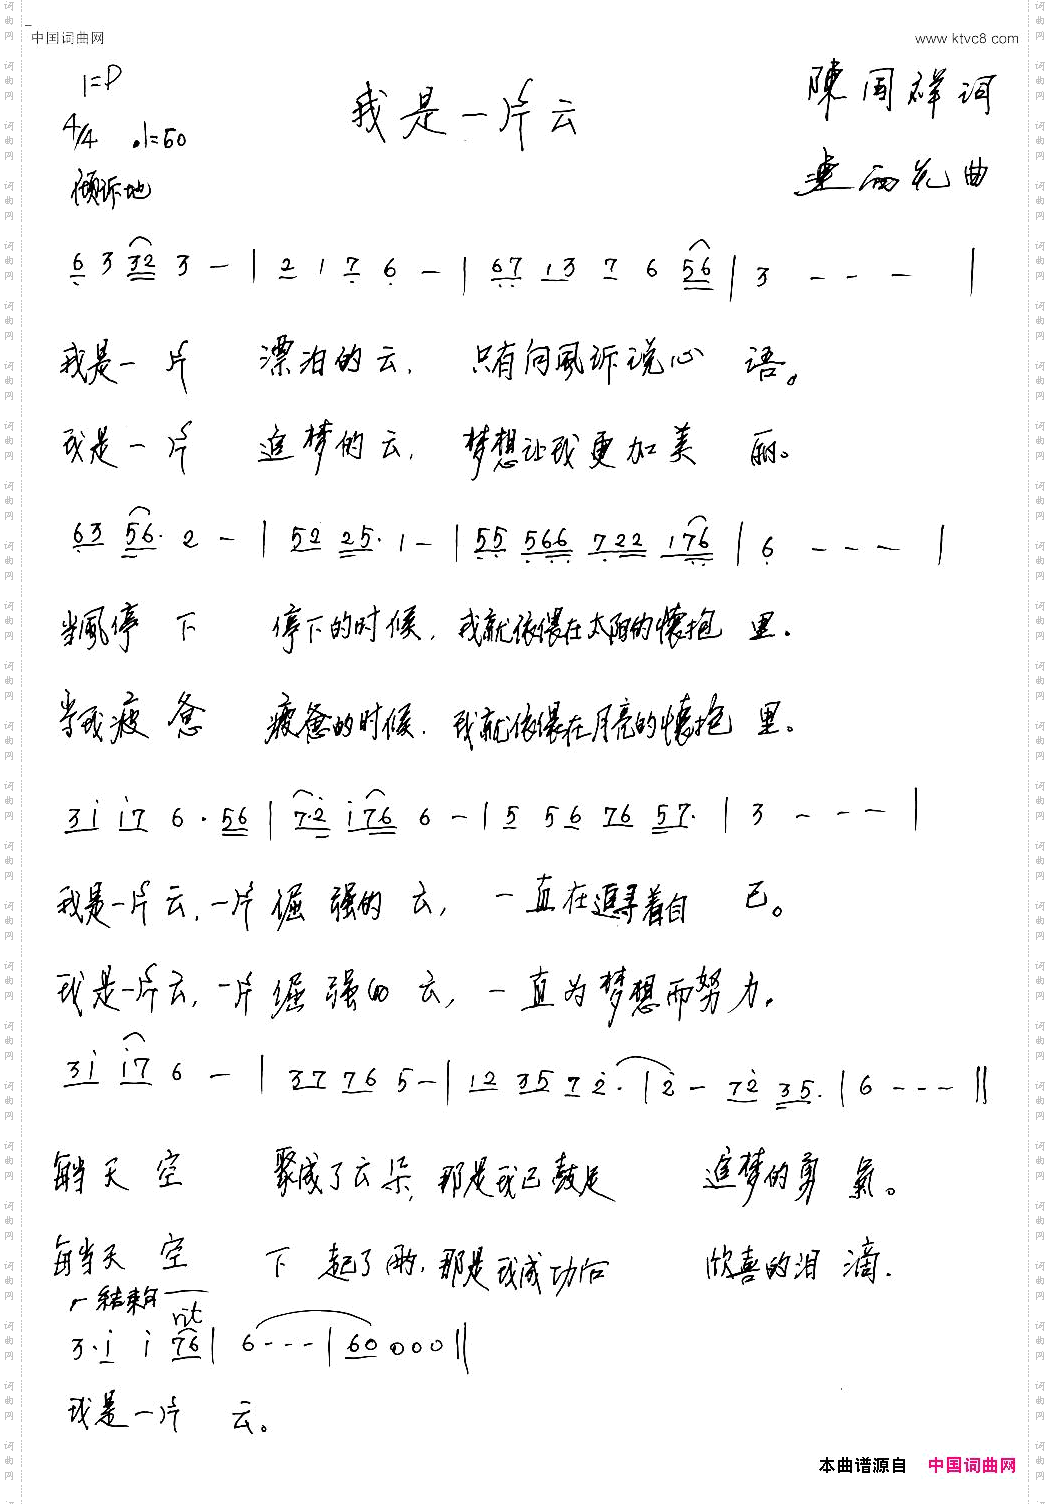 中国词曲网
www.ktvc8.com
1=D
4/4 ♩=60
倾诉地
我是一片云
陳国祥词
曲
6 3 32 3 - | 2 1 7 6 - | 67 13 7 6 56 | 3 - - - |
我是一片 漂泊的云, 只有向風诉说心 语。
我是一片 追梦的云, 梦想让我更加美 丽。
63 56· 2 - | 52 25· 1 - | 55 566 722 176 | 6 - - - |
当風停 下 停下的时候, 我就依偎在太阳的懷抱 里。
当我疲惫 疲惫的时候, 我就依偎在月亮的懷抱 里。
3i i7 6 · 56 | 7·2 i76 6 - | 5 5 6 76 57· | 3 - - - |
我是一片云, 一片倔强的 云, 一直在追寻着自 己。
我是一片云, 一片倔强的 云, 一直为梦想而努力。
3i i7 6 - | 37 76 5 - | 12 35 7 2· | 2 - 72 35· | 6 - - - ||
每当天空 聚成了云朵, 那是我已鼓足 追梦的勇 氣。
每当天空 下 起了雨, 那是我成功后 欣喜的泪 滴.
结束句
rit
3·i i 76 | 6 - - - | 60 000 ||
我是一片 云。
本曲谱源自 中国词曲网